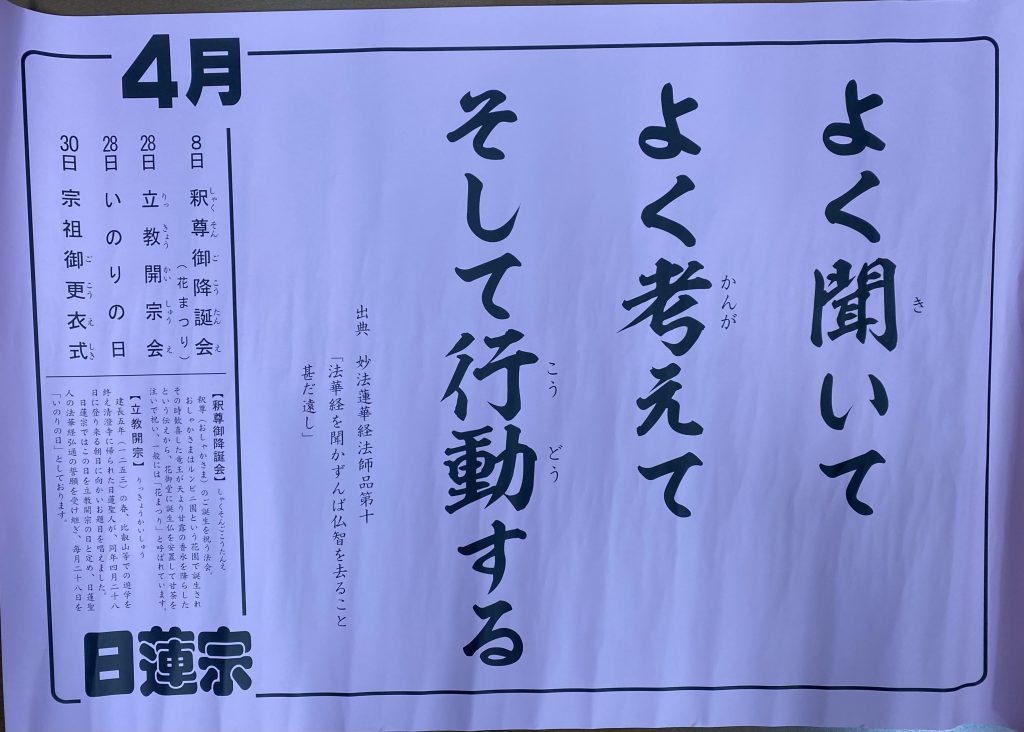 よく聞いて
き
よく考えて
かんが
そして行動する
こうどう
出典　妙法蓮華経法師品第十
「法華経を聞かずんば仏智を去ること
甚だ遠し」
4月
8日 釈尊御降誕会
しゃくそんごこうたんえ
（花まつり）
28日 立教開宗会
りっきょうかいしゅうえ
28日 いのりの日
30日 宗祖御更衣式
ごこうえしき
【釈尊御降誕会】しゃくそんごこうたんえ
釈尊（おしゃかさま）のご誕生を祝う法会。
おしゃかさまはルンビニ園という花園で誕生され
その時歓喜した竜王が天より甘露の香水を降らした
という伝えから、花御堂に誕生仏を安置して甘茶を
注いで祝い、一般には「花まつり」と呼ばれています。
【立教開宗】りっきょうかいしゅう
建長五年（一二五三）の春、比叡山等での遊学を
終え清澄寺に帰られた日蓮聖人が、同年四月二十八
日に登り来る朝日に向かいお題目を唱えました。
日蓮宗ではこの日を立教開宗の日と定め、日蓮聖
人の法華経弘通の誓願を受け継ぎ、毎月二十八日を
「いのりの日」としております。
日蓮宗